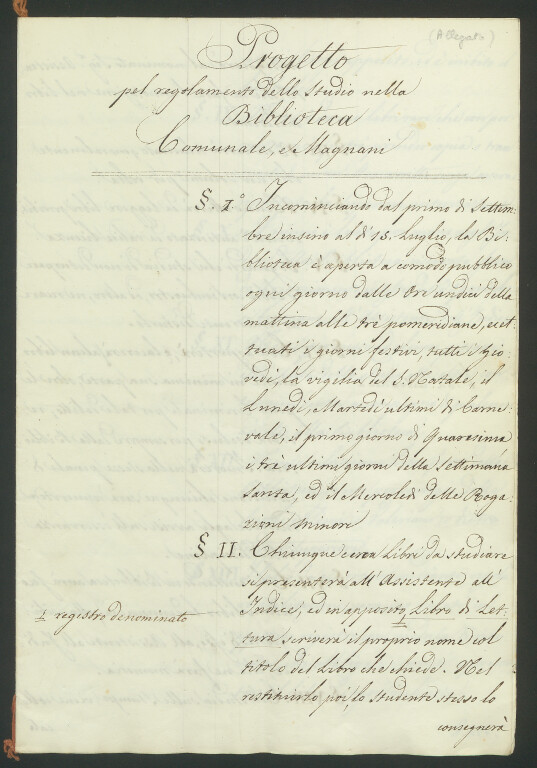 (Allegato)
Progetto
pel regolamento dello Studio nella
Biblioteca
Comunale, e Magnani
§. I.° Incominciando dal primo di Settem-
bre insino al dì 15. Luglio, la Bi-
blioteca è aperta a comodo pubblico
ogni giorno dalle Ore undici della
mattina alle trè pomeridiane, eccet-
tuati i giorni festivi, tutti i Gio-
vedì, la vigilia del S. Natale, il
Lunedì, e Martedì ultimi di Carne-
vale, il primo giorno di Quaresima
i trè ultimi giorni della Settimana
Santa, ed il Mercoledì delle Roga-
zioni minori
§ II. Chiunque cerca Libri da studiare
si presenterà all'Assistente all'
Indice, ed in apposito 1/ Libro di Let-
1/ registro denominato
tura scriverà il proprio nome col
titolo del Libro che chiede. Nel
restituirlo poi, lo studente stesso lo
consegnerà